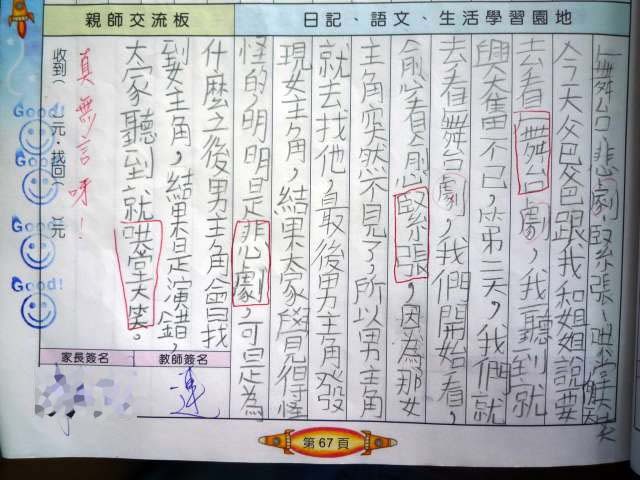 日記、語文、生活學習園地
舞台 悲劇 緊張 哄堂大笑
今天爸爸跟我和姐姐說要
去看舞台劇,我聽到就
興奮不已,第二天,我們就
去看舞台劇,我們開始看,
愈看愈緊張,因為那女
主角突然不見了,所以男主角
就去找他,最後男主角發
現女主角,結果大家覺得怪
怪的,明明是悲劇,可是為
什麼之後男主角會找
到女主角,結果是演錯,
大家聽到就哄堂大笑。
親師交流板
真無言呀!
收到( )元.找回( )元
Good!
Good!
Good!
Good!
家長簽名
教師簽名
蓮
第67頁